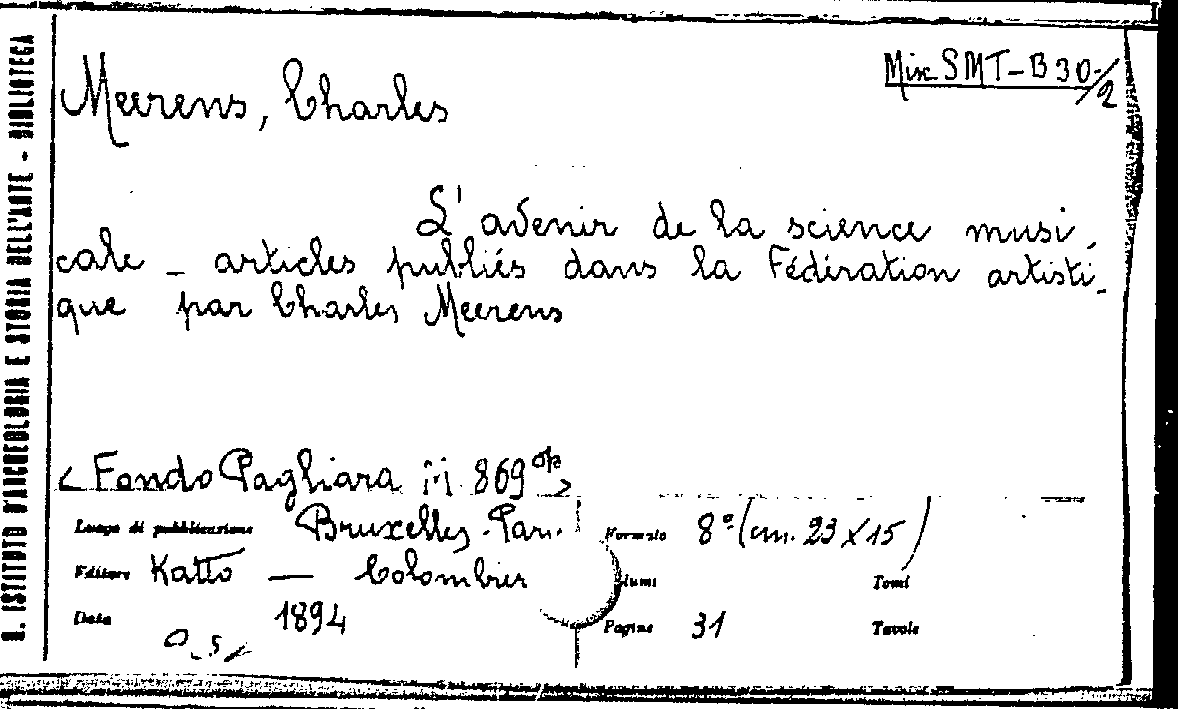 R. ISTITUTO D'ARCHEOLOGIA E STORIA DELL'ARTE - BIBLIOTECA
Misc SMT-B 30/2
Meerens, Charles
L'avenir de la science musi-
cale - articles publiés dans la Fédération artisti-
que par Charles Meerens
< Fondo Pagliara 869 >
Luogo di pubblicazione Bruxelles - Pari. Formato 8° (cm. 23 X 15)
Editore Katto — Colombier Volumi Tomi
Data 1894 Pagine 31 Tavole